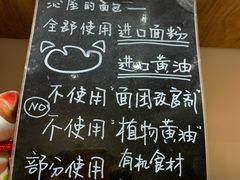 沁屋的面包——
全部使用 进口面粉
进口黄油
NO 不使用"面团改良剂"
不使用"植物黄油"
部分使用 有机食材